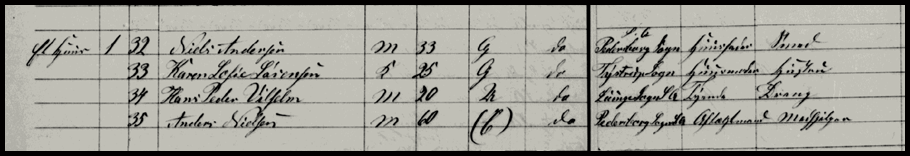 et Huus 1 32 Niels Andersen M 33 G do Pederborg Sogn S.A. Huusfader Smed
33 Karen Sofie Sørensen K 25 G do Tystrup Sogn Huusmoder Hustru
34 Hans Peder Vilhelm M 20 U do Lunge Sogn S.A. Tyende Dreng
35 Anders Nielsen M 60 (E) do Pederborg Sogn S.A. Aftægtsmand